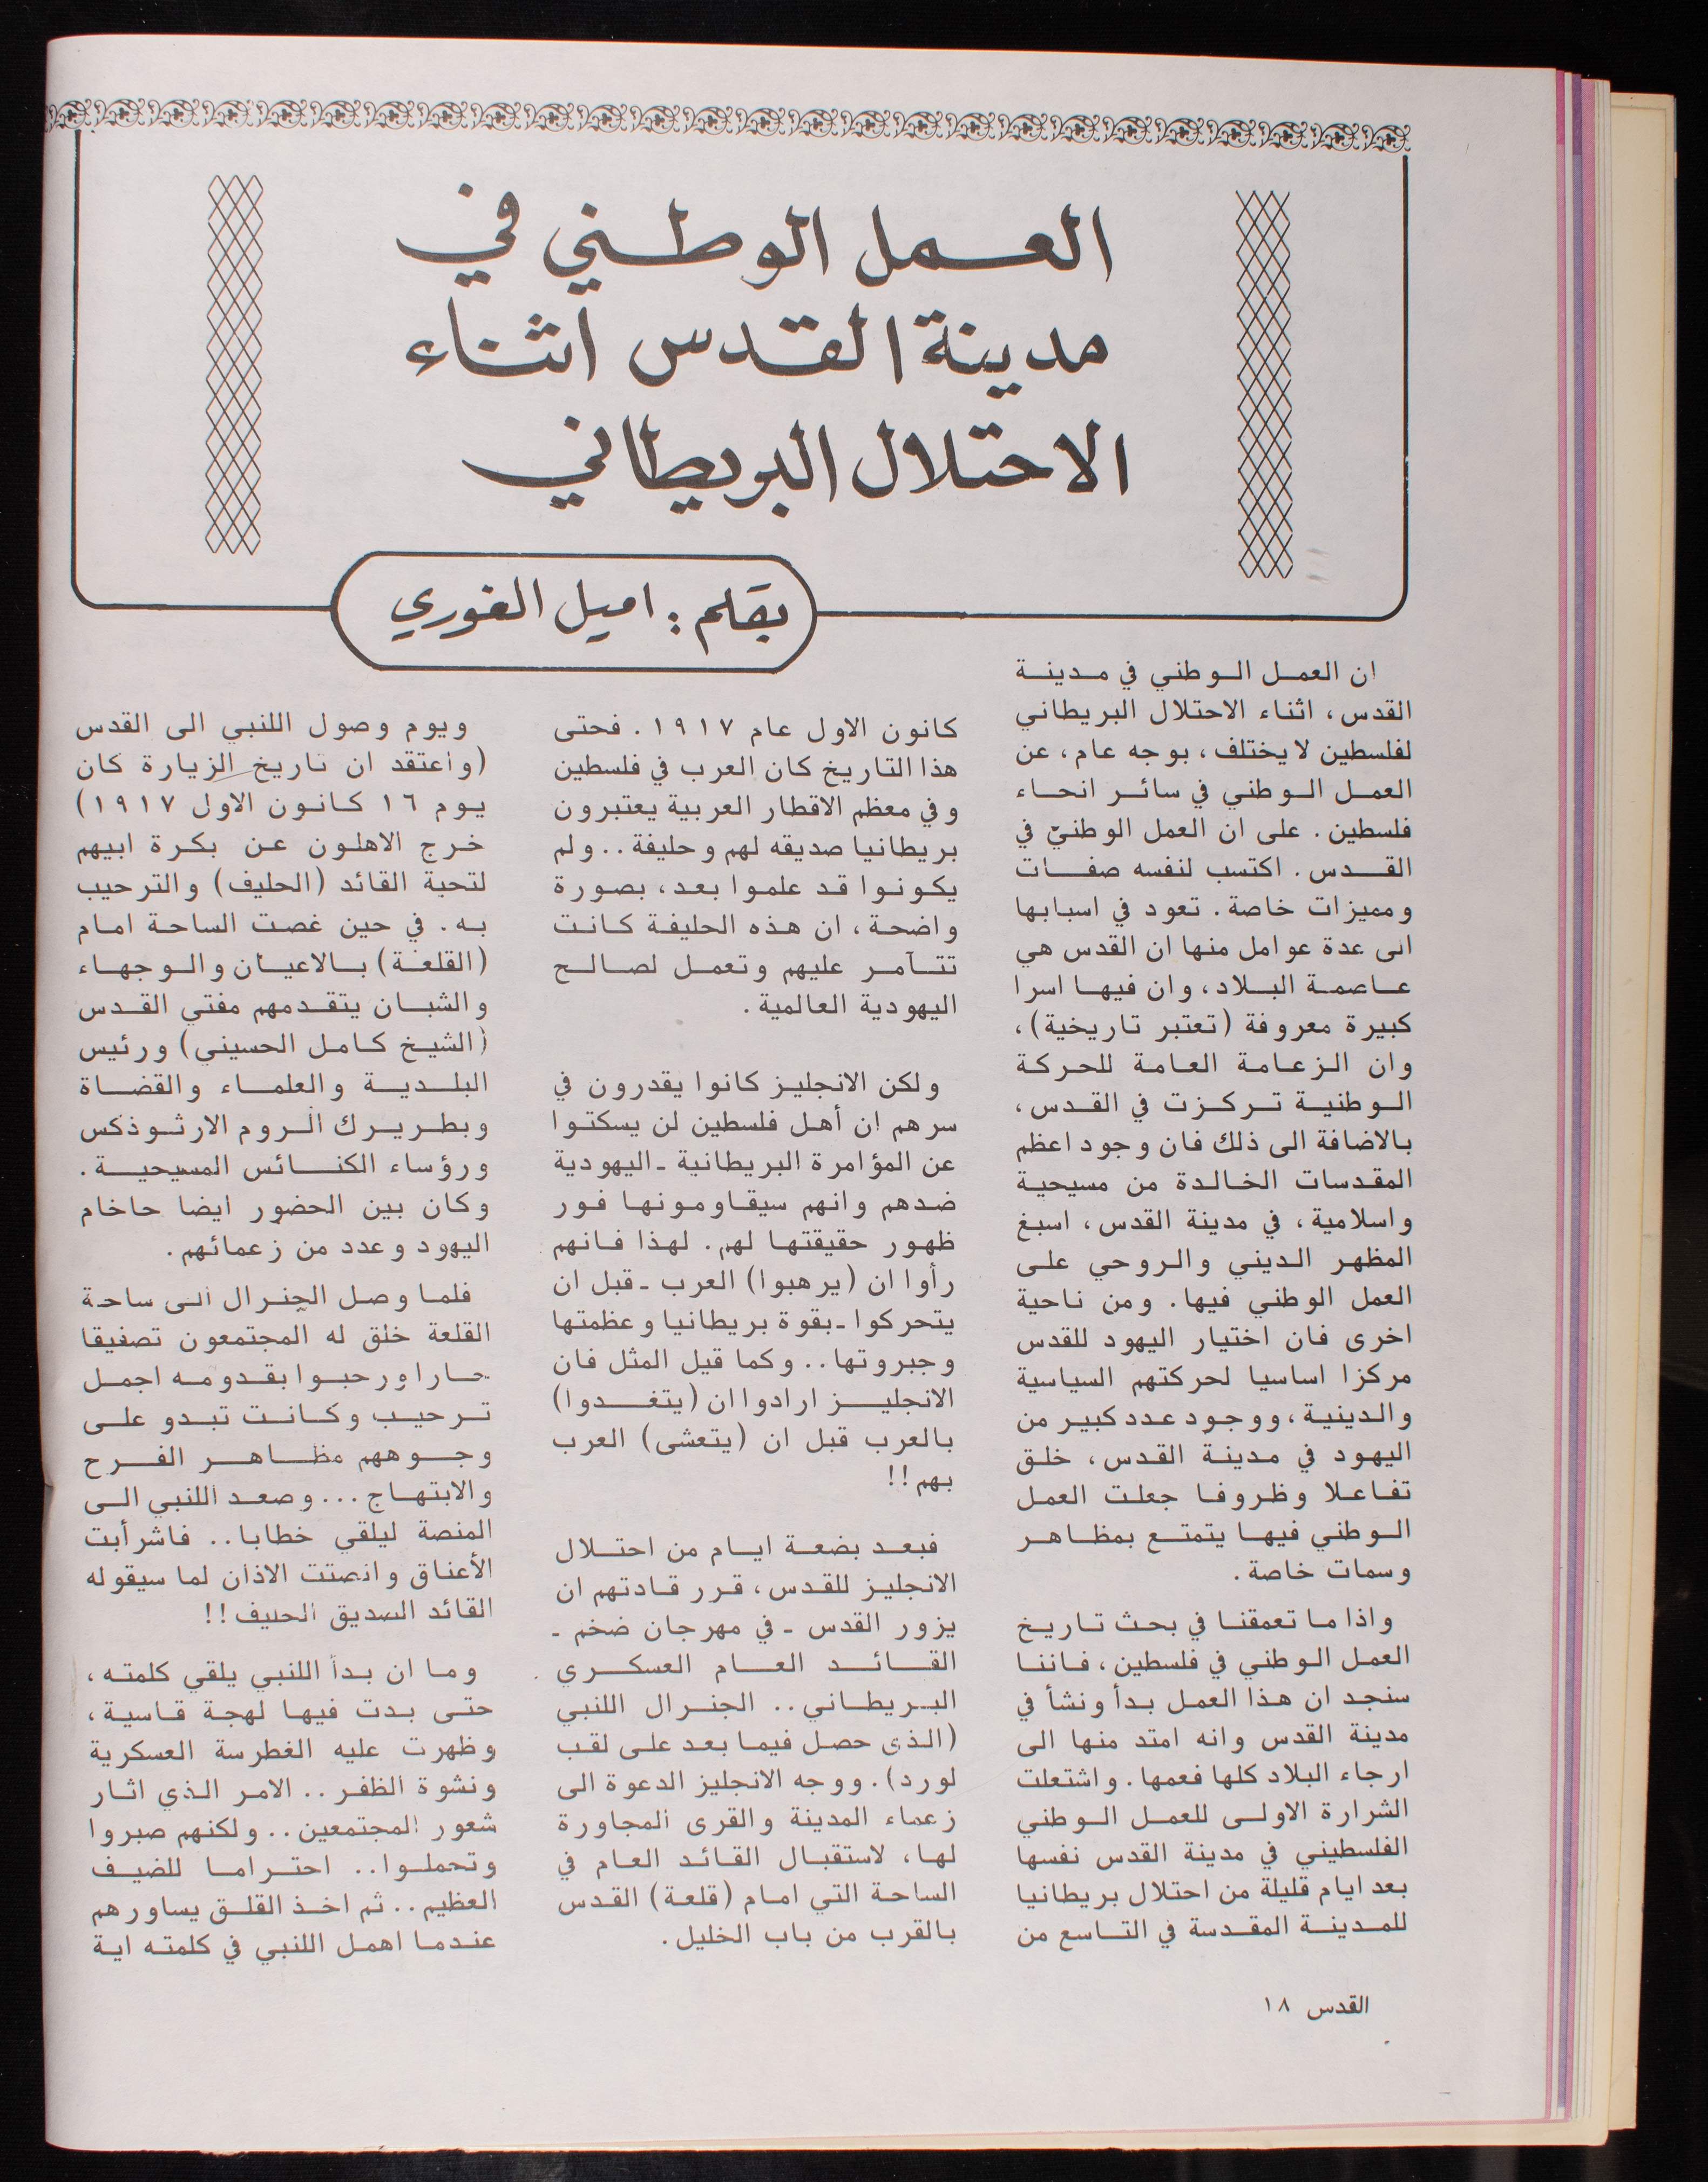 العمل الوطني في
مدينة القدس اثناء
الاحتلال البريطاني
بقلم : اميل الغوري
ان العمل الوطني في مدينة
القدس، اثناء الاحتلال البريطاني
لفلسطين لا يختلف، بوجه عام، عن
العمل الوطني في سائر انحاء
فلسطين. على ان العمل الوطني في
القدس. اكتسب لنفسه صفات
ومميزات خاصة. تعود في اسبابها
الى عدة عوامل منها ان القدس هي
عاصمة البلاد، وان فيها اسرا
كبيرة معروفة (تعتبر تاريخية)،
وان الزعامة العامة للحركة
الوطنية تركزت في القدس،
بالاضافة الى ذلك فان وجود اعظم
المقدسات الخالدة من مسيحية
واسلامية، في مدينة القدس، اسبغ
المظهر الديني والروحي على
العمل الوطني فيها. ومن ناحية
اخرى فان اختيار اليهود للقدس
مركزا اساسيا لحركتهم السياسية
والدينية، ووجود عدد كبير من
اليهود في مدينة القدس، خلق
تفاعلا وظروفا جعلت العمل
الوطني فيها يتمتع بمظاهر
وسمات خاصة.
واذا ما تعمقنا في بحث تاريخ
العمل الوطني في فلسطين، فاننا
سنجد ان هذا العمل بدأ ونشأ في
مدينة القدس وانه امتد منها الى
ارجاء البلاد كلها فعمها. واشتعلت
الشرارة الاولى للعمل الوطني
الفلسطيني في مدينة القدس نفسها
بعد ايام قليلة من احتلال بريطانيا
للمدينة المقدسة في التاسع من
كانون الاول عام ١٩١٧. فحتى
هذا التاريخ كان العرب في فلسطين
وفي معظم الاقطار العربية يعتبرون
بريطانيا صديقه لهم وحليفة.. ولم
يكونوا قد علموا بعد، بصورة
واضحة، ان هذه الحليفة كانت
تتآمر عليهم وتعمل لصالح
اليهودية العالمية.
ولكن الانجليز كانوا يقدرون في
سرهم ان أهل فلسطين لن يسكتوا
عن المؤامرة البريطانية ـ اليهودية
ضدهم وانهم سيقاومونها فور
ظهور حقيقتها لهم. لهذا فانهم
رأوا ان (يرهبوا) العرب ـ قبل ان
يتحركوا ـ بقوة بريطانيا وعظمتها
وجبروتها.. وكما قيل المثل فان
الانجليز ارادوا ان (يتغدوا)
بالعرب قبل ان (يتعشى) العرب
بهم!!
فبعد بضعة ايام من احتلال
الانجليز للقدس، قرر قادتهم ان
يزور القدس ـ في مهرجان ضخم ـ
القائد العام العسكري
البريطاني.. الجنرال اللنبي
(الذى حصل فيما بعد على لقب
لورد). ووجه الانجليز الدعوة الى
زعماء المدينة والقرى المجاورة
لها، لاستقبال القائد العام في
الساحة التي امام (قلعة) القدس
بالقرب من باب الخليل.
ويوم وصول اللنبي الى القدس
(واعتقد ان تاريخ الزيارة كان
يوم ١٦ كانون الاول ١٩١٧)
خرج الاهلون عن بكرة ابيهم
لتحية القائد (الحليف) والترحيب
به. في حين غصت الساحة امام
(القلعة) بالاعيان والوجهاء
والشبان يتقدمهم مفتي القدس
(الشيخ كامل الحسيني) ورئيس
البلدية والعلماء والقضاة
وبطريرك الروم الارثوذكس
ورؤساء الكنائس المسيحية.
وكان بين الحضور ايضا حاخام
اليهود وعدد من زعمائهم.
فلما وصل الجنرال الى ساحة
القلعة خلق له المجتمعون تصفيقا
حارا ورحبوا بقدومه اجمل
ترحيب وكانت تبدو على
وجوههم مظاهر الفرح
والابتهاج... وصعد اللنبي الى
المنصة ليلقي خطابا.. فاشرأبت
الأعناق وانصتت الاذان لما سيقوله
القائد الصديق الحليف!!
وما ان بدأ اللنبي يلقي كلمته،
حتى بدت فيها لهجة قاسية،
وظهرت عليه الغطرسة العسكرية
ونشوة الظفر.. الامر الذي اثار
شعور المجتمعين.. ولكنهم صبروا
وتحملوا.. احتراما للضيف
العظيم.. ثم اخذ القلق يساورهم
عندما اهمل اللنبي في كلمته اية
القدس ١٨